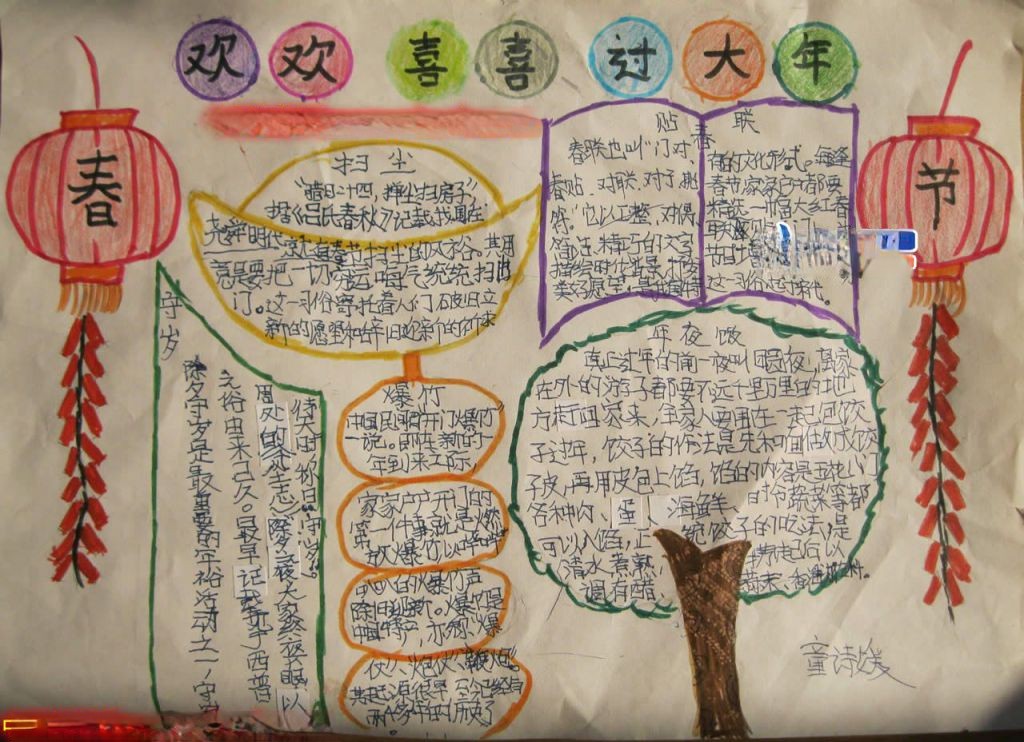 欢欢喜喜过大年
春
节
扫尘
"腊月二十四,掸尘扫房子"
据《吕氏春秋》记载,我国在
尧舜时代就有春节扫尘的风俗。其用
意是要把一切穷运、晦气统统扫出
门。这一习俗寄托着人们破旧立
新的愿望和辞旧迎新的祈求
贴春联
春联也叫"门对、
春贴、对联、对子、桃
符。"它以工整、对偶、
简洁、精巧的文字
描绘时代背景、抒发
美好愿望,是我国特
有的文化形式。每逢
春节,家家户户都要
精选一幅大红春
这一习俗起于宋代。
年夜饭
真正过年的前一夜叫团圆夜,离家
在外的游子都要不远千里万里的地
方赶回家来,全家人要围在一起包饺
子过年,饺子的作法是先和面做成饺
子皮,再用皮包上馅,馅的内容是五花八门
各种肉、蛋、海鲜
的时令蔬菜等都
可以入馅,正统饺子的吃法,是
清水煮熟
捞起后以
调有醋
守岁
除夕守岁是最重要的年俗活动之一,守岁
之俗由来已久。最早记载于西晋
周处的《风土志》:除夕之夜大家终夜不眠,以
待天明,称曰"守岁"。
爆竹
中国民间有"开门爆竹"
一说。即在新的一
年到来之际,
家家户户开门的
第一件事就是燃
放爆竹,以哔哔
叭叭的爆竹声
除旧迎新。爆竹是
中国特产,亦称"爆
仗"、"炮仗"、"鞭炮"。
其起源很早,至今已经有
两千余年的历史了
童诗媛